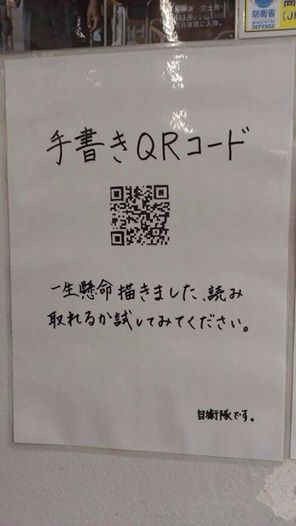 防衛省
手書きQRコード
一生懸命描きました、読み
取れるか試してみてください。
自衛隊です。